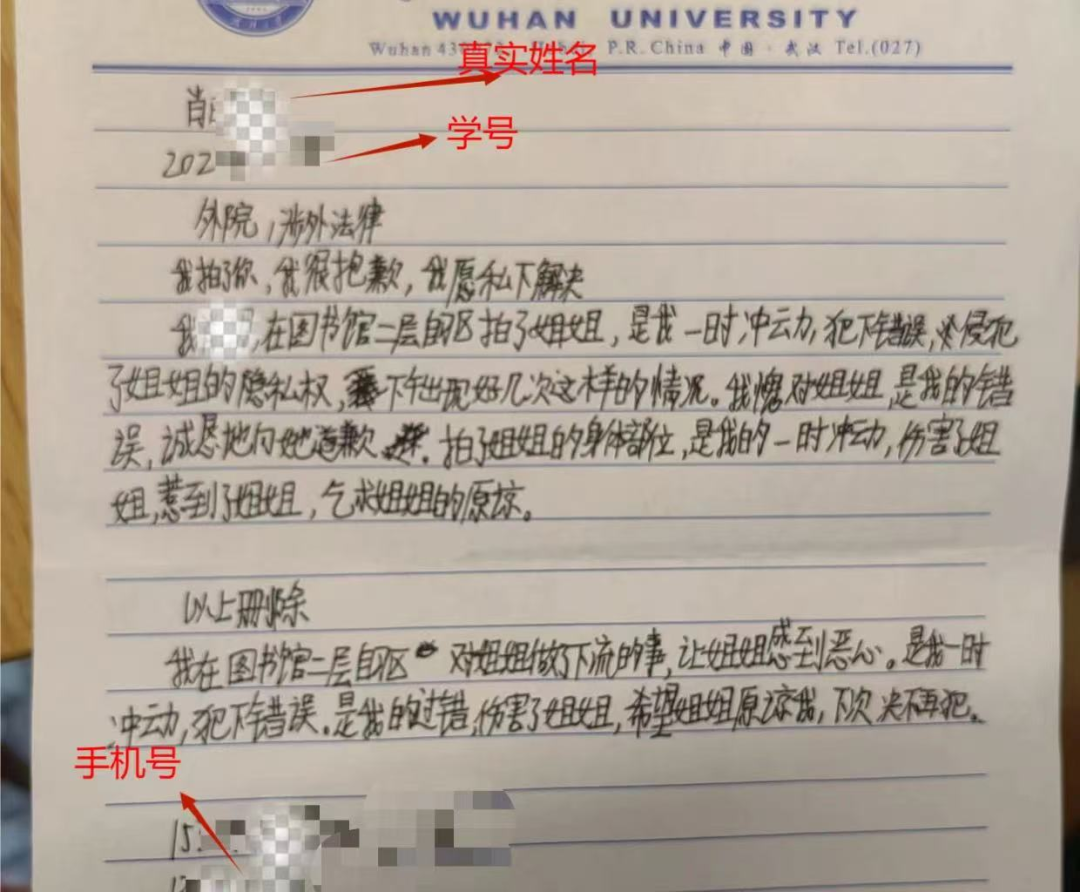 WUHAN UNIVERSITY
P.R. China 中国·武汉 Tel.(027)
真实姓名
肖
学号
202
外院,涉外法律
我拍了你,我很抱歉,我愿私下解决
我,在图书馆二层自习区拍了姐姐,是我一时冲动,犯下错误,侵犯
了姐姐的隐私权,下午出现好几次这样的情况。我愧对姐姐,是我的错
误,诚恳地向她道歉。拍了姐姐的身体部位,是我的一时冲动,伤害了姐
姐,惹到了姐姐,乞求姐姐的原谅。
以上删除
我在图书馆二层自习区对姐姐做了下流的事,让姐姐感到恶心。是我一时
冲动,犯下错误。是我的过错,伤害了姐姐,希望姐姐原谅我,下次决不再犯。
手机号
15